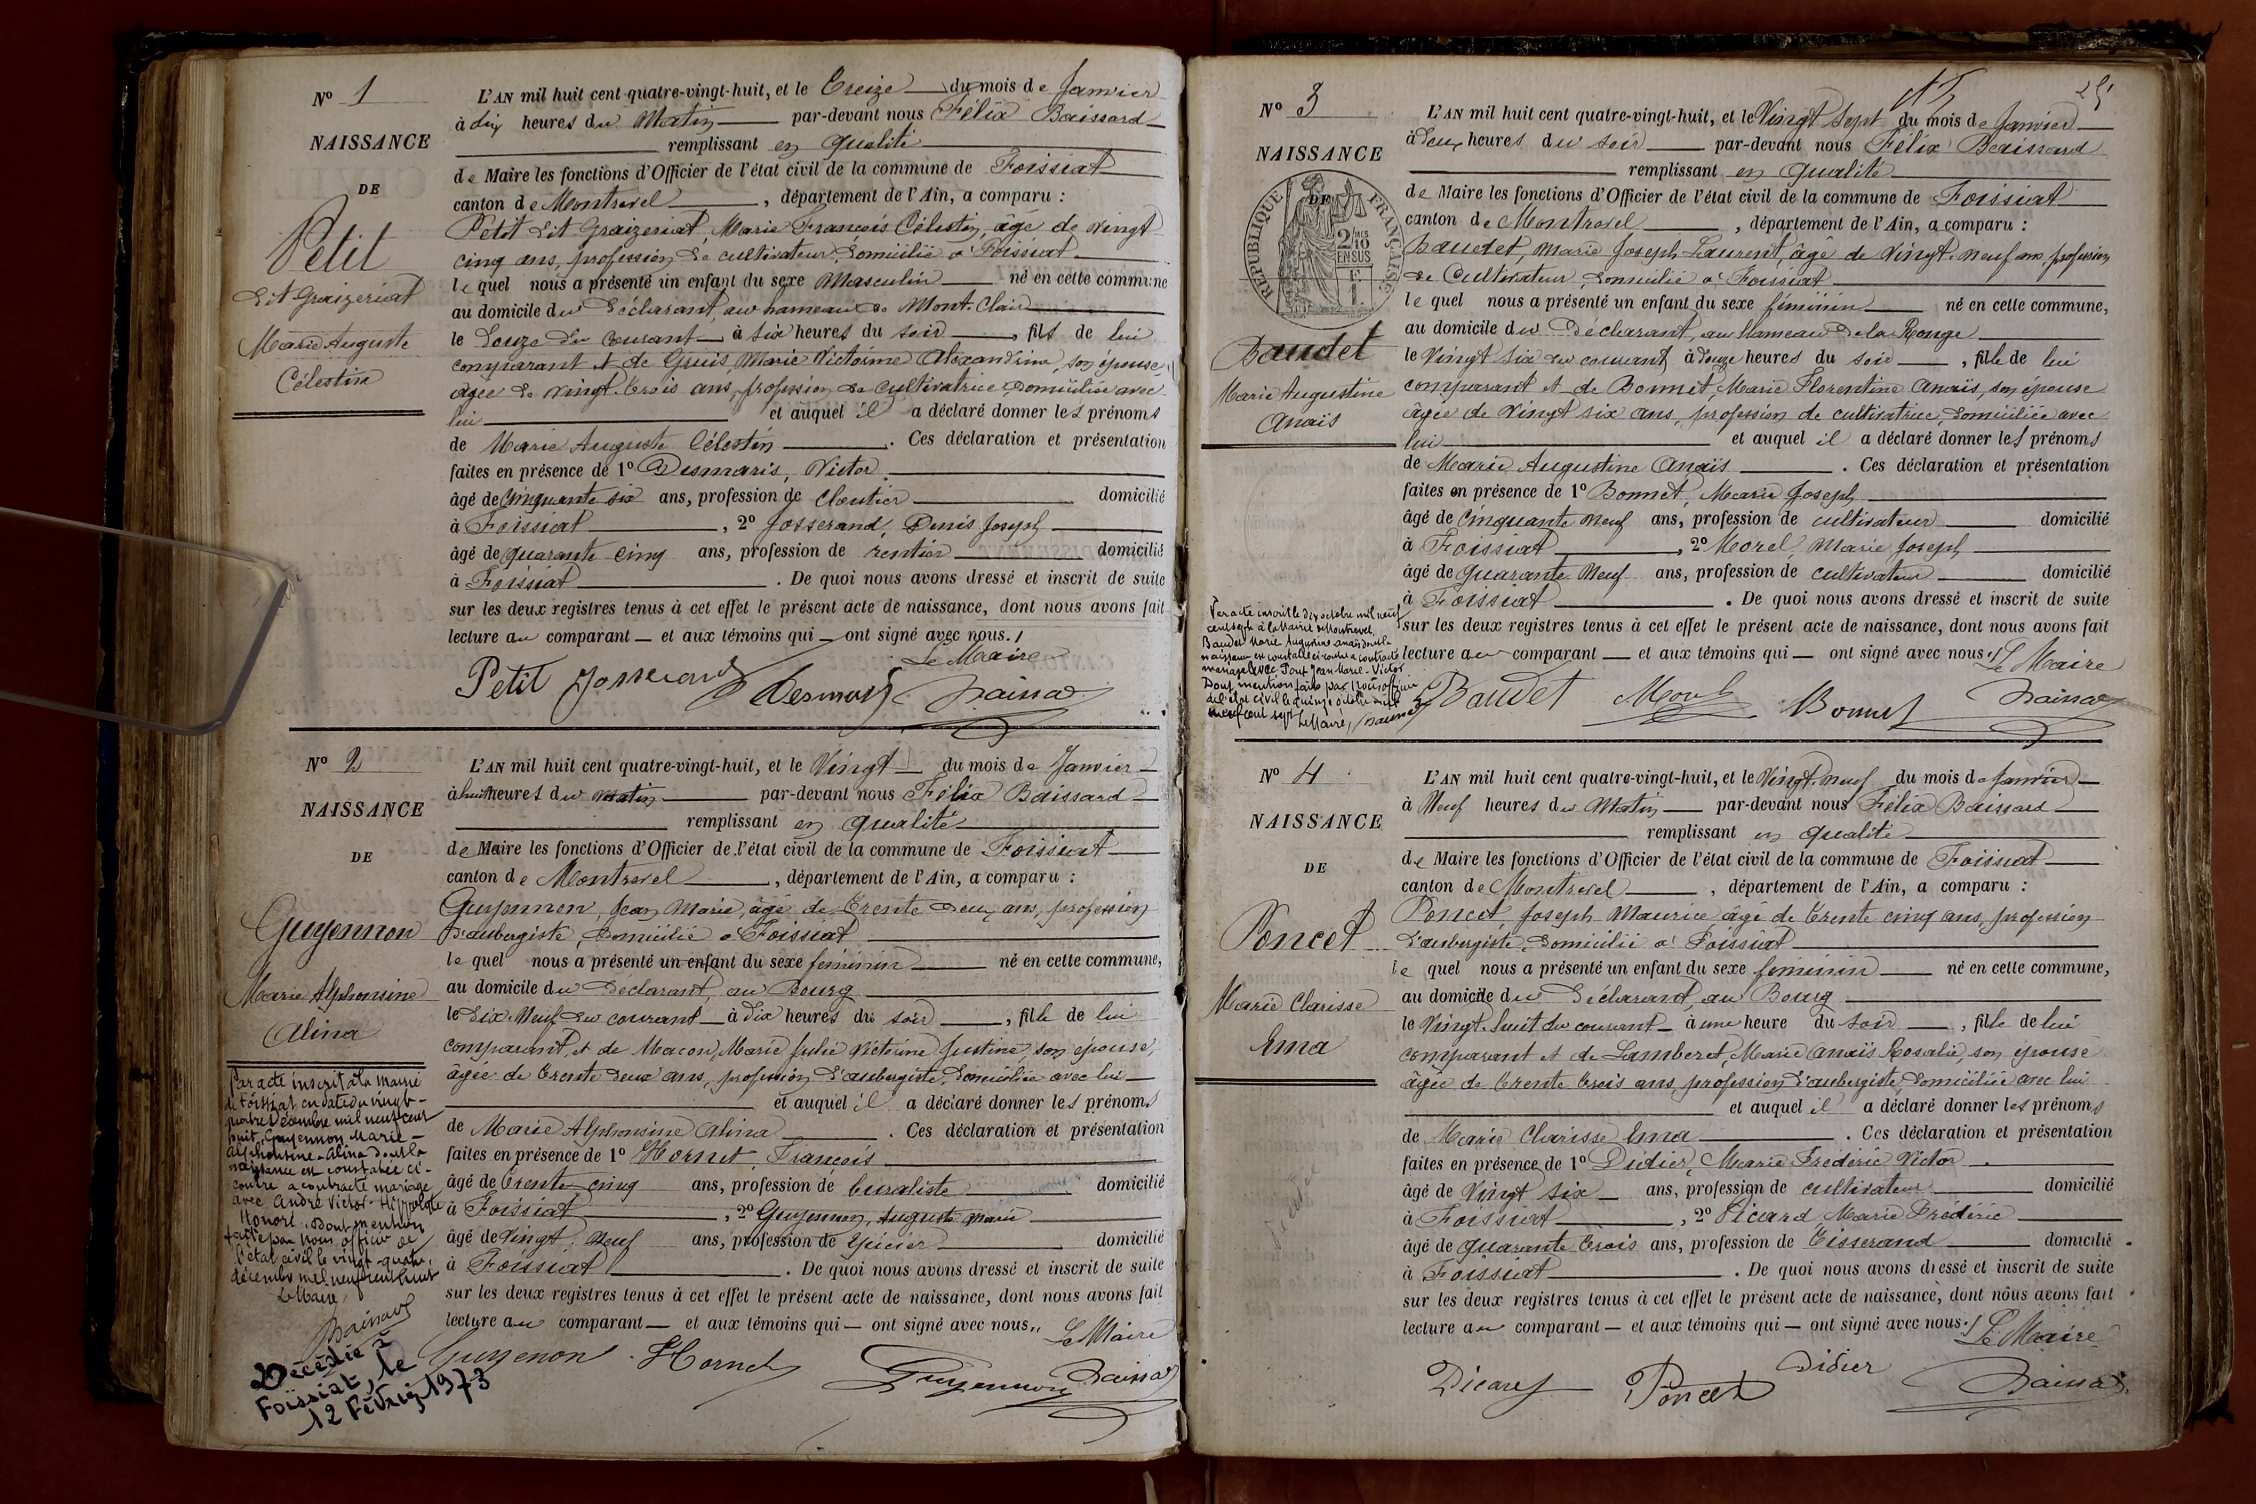 Nº 1
NAISSANCE
DE
Petit
dit Graizeriat
Marie Auguste
Célestin
L'AN mil huit cent quatre-vingt-huit, et le Treize du mois de Janvier
à dix heures du Matin par-devant nous Félix Baissard
remplissant en qualité
de Maire les fonctions d'Officier de l'état civil de la commune de Foissiat
canton de Montrevel, département de l'Ain, a comparu :
Petit dit Graizeriat, Marie François Célestin, âgé de vingt
cinq ans, profession de cultivateur, domicilié à Foissiat
lequel nous a présenté un enfant du sexe Masculin né en cette commune
au domicile du déclarant, au hameau de Mont-Clair
le douze du courant à six heures du soir, fils de lui
comparant et de Guis, Marie Victorine Alexandrine, son épouse,
âgée de vingt-trois ans, profession de cultivatrice, domiciliée avec
lui et auquel il a déclaré donner les prénoms
de Marie Auguste Célestin. Ces déclaration et présentation
faites en présence de 1º Desmaris, Victor
âgé de cinquante six ans, profession de cloutier domicilié
à Foissiat, 2º Josserand, Denis Joseph
âgé de quarante cinq ans, profession de rentier domicilié
à Foissiat. De quoi nous avons dressé et inscrit de suite
sur les deux registres tenus à cet effet le présent acte de naissance, dont nous avons fait
lecture au comparant et aux témoins qui ont signé avec nous.
Le Maire
Petit Josserand Desmaris Baissard
Nº 2
NAISSANCE
DE
Guyennon
Marie Alphonsine
Alina
Par acte inscrit à la Mairie
de Foissiat en date du vingt-
quatre Décembre mil neuf cent
huit, Guyennon Marie-
Alphonsine-Alina dont la
naissance est constatée ci-
contre a contracté mariage
avec André Victor-Hippolyte
Honoré. Dont mention
faite par nous officier de
l'état civil le vingt-quatre
décembre mil neuf cent huit
Le Maire,
Décédée à
Foissiat, le
12 Février 1973
L'AN mil huit cent quatre-vingt-huit, et le Vingt du mois de Janvier
à huit heures du matin par-devant nous Félix Baissard
remplissant en qualité
de Maire les fonctions d'Officier de l'état civil de la commune de Foissiat
canton de Montrevel, département de l'Ain, a comparu :
Guyennon, Jean Marie, âgé de Trente deux ans, profession
d'aubergiste, domicilié à Foissiat
lequel nous a présenté un enfant du sexe féminin né en cette commune,
au domicile du déclarant, au Bourg
le Dix-Neuf du courant à dix heures du soir, fille de lui
comparant, et de Macon, Marie Julie Victorine Justine, son épouse,
âgée de trente deux ans, profession d'aubergiste, domiciliée avec lui
et auquel il a déclaré donner les prénoms
de Marie Alphonsine Alina. Ces déclaration et présentation
faites en présence de 1º Hornet, François
âgé de trente cinq ans, profession de buraliste domicilié
à Foissiat, 2º Guyennon, Auguste Marie
âgé de vingt-neuf ans, profession de épicier domicilié
à Foissiat. De quoi nous avons dressé et inscrit de suite
sur les deux registres tenus à cet effet le présent acte de naissance, dont nous avons fait
lecture au comparant et aux témoins qui ont signé avec nous.
Le Maire
Guyennon Hornet Guyennon Baissard
25
Nº 3
NAISSANCE
DE
RÉPUBLIQUE FRANÇAISE
2/10
EN SUS
Baudet
Marie Augustine
Anaïs
L'AN mil huit cent quatre-vingt-huit, et le Vingt Sept du mois de Janvier
à deux heures du soir par-devant nous Félix Baissard
remplissant en qualité
de Maire les fonctions d'Officier de l'état civil de la commune de Foissiat
canton de Montrevel, département de l'Ain, a comparu :
Baudet, Marie Joseph Laurent, âgé de vingt-neuf ans, profession
de Cultivateur, domicilié à Foissiat
lequel nous a présenté un enfant du sexe féminin né en cette commune,
au domicile du déclarant, au hameau de la Ronge
le Vingt six du courant, à douze heures du soir, fille de lui
comparant et de Bonnet, Marie Florentine Anaïs, son épouse
âgée de Vingt six ans, profession de cultivatrice, domiciliée avec
lui et auquel il a déclaré donner les prénoms
de Marie Augustine Anaïs. Ces déclaration et présentation
faites en présence de 1º Bonnet, Marie Joseph,
âgé de cinquante neuf ans, profession de cultivateur domicilié
à Foissiat, 2º Morel, Marie Joseph
âgé de quarante Neuf ans, profession de cultivateur domicilié
à Foissiat. De quoi nous avons dressé et inscrit de suite
sur les deux registres tenus à cet effet le présent acte de naissance, dont nous avons fait
lecture au comparant et aux témoins qui ont signé avec nous. Le Maire
Baudet Morel Bonnet Baissard
Par acte inscrit le dix octobre mil neuf
cent sept à la Mairie de Montrevel,
Baudet Marie Augustine Anaïs dont la
naissance est constatée ci-contre a contracté
mariage avec Jean-Marie-Victor
Dont mention faite par nous officier
de l'état civil le quinze octobre mil
neuf cent sept Le Maire,
Nº 4
NAISSANCE
DE
Poncet
Marie Clarisse
Ema
L'AN mil huit cent quatre-vingt-huit, et le Vingt-neuf du mois de Janvier
à Neuf heures du Matin par-devant nous Félix Baissard
remplissant en qualité
de Maire les fonctions d'Officier de l'état civil de la commune de Foissiat
canton de Montrevel, département de l'Ain, a comparu :
Poncet, Joseph Maurice âgé de Trente cinq ans, profession
d'aubergiste, domicilié à Foissiat
lequel nous a présenté un enfant du sexe féminin né en cette commune,
au domicile du déclarant, au Bourg
le Vingt-huit du courant à une heure du soir, fille de lui
comparant et de Lamberet, Marie Anaïs Rosalie, son épouse
âgée de trente trois ans, profession d'aubergiste, domiciliée avec lui
et auquel il a déclaré donner les prénoms
de Marie Clarisse Ema. Ces déclaration et présentation
faites en présence de 1º Didier, Marie Frédéric Victor
âgé de Vingt six ans, profession de cultivateur domicilié
à Foissiat, 2º Picard, Marie Frédéric
âgé de quarante trois ans, profession de Tisserand domicilié
à Foissiat. De quoi nous avons dressé et inscrit de suite
sur les deux registres tenus à cet effet le présent acte de naissance, dont nous avons fait
lecture au comparant et aux témoins qui ont signé avec nous.
Le Maire
Picard Poncet Didier Baissard